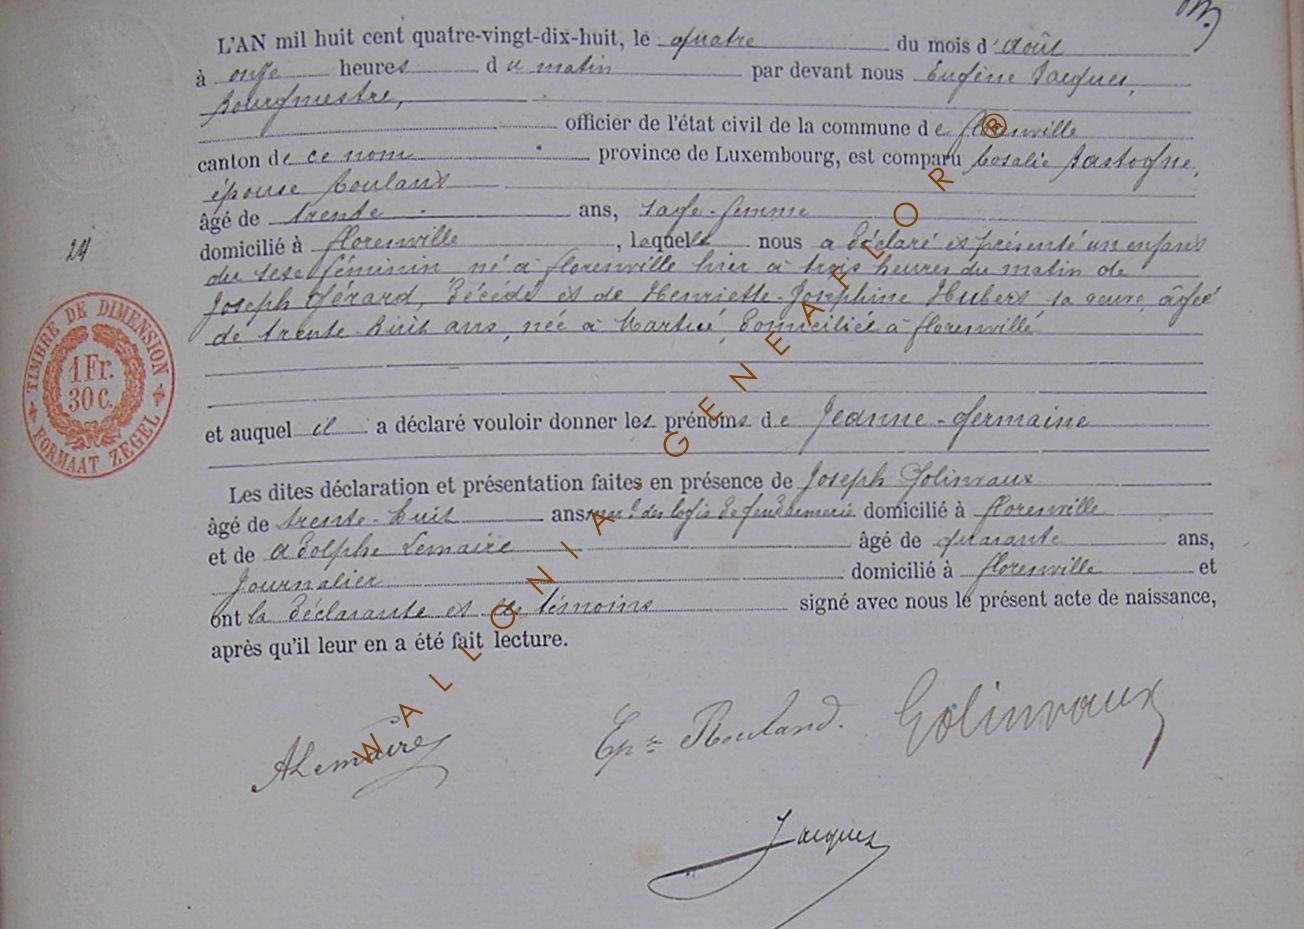 L'AN mil huit cent quatre-vingt-dix-huit, le quatre du mois d'Août
à onze heures du matin par devant nous Eugène Jacques,
Bourgmestre,
officier de l'état civil de la commune de Florenville
canton de ce nom province de Luxembourg, est comparu Rosalie Bastogne,
épouse Rouland
âgé de trente ans, sage-femme
24
domicilié à Florenville, laquelle nous a déclaré et présenté un enfant
du sexe féminin né à Florenville hier à trois heures du matin de
Joseph Gérard, décédé et de Henriette-Joséphine Hubert sa veuve, âgée
de trente-huit ans, née à domiciliée à Florenville
TIMBRE DE DIMENSION
1 Fr.
30 C.
FORMAAT ZEGEL
et auquel il a déclaré vouloir donner les prénoms de Jeanne-Germaine
Les dites déclaration et présentation faites en présence de Joseph Golinvaux
âgé de trente-huit ans mar.l des logis de gendarmerie domicilié à Florenville
et de Adolphe Lemaire âgé de quarante ans,
Journalier domicilié à Florenville et
ont la déclarante et les témoins signé avec nous le présent acte de naissance,
après qu'il leur en a été fait lecture.
ALemaire
Ep.se Rouland. Golinvaux
Jacques
WALLONIA - GENEAFLOR ®